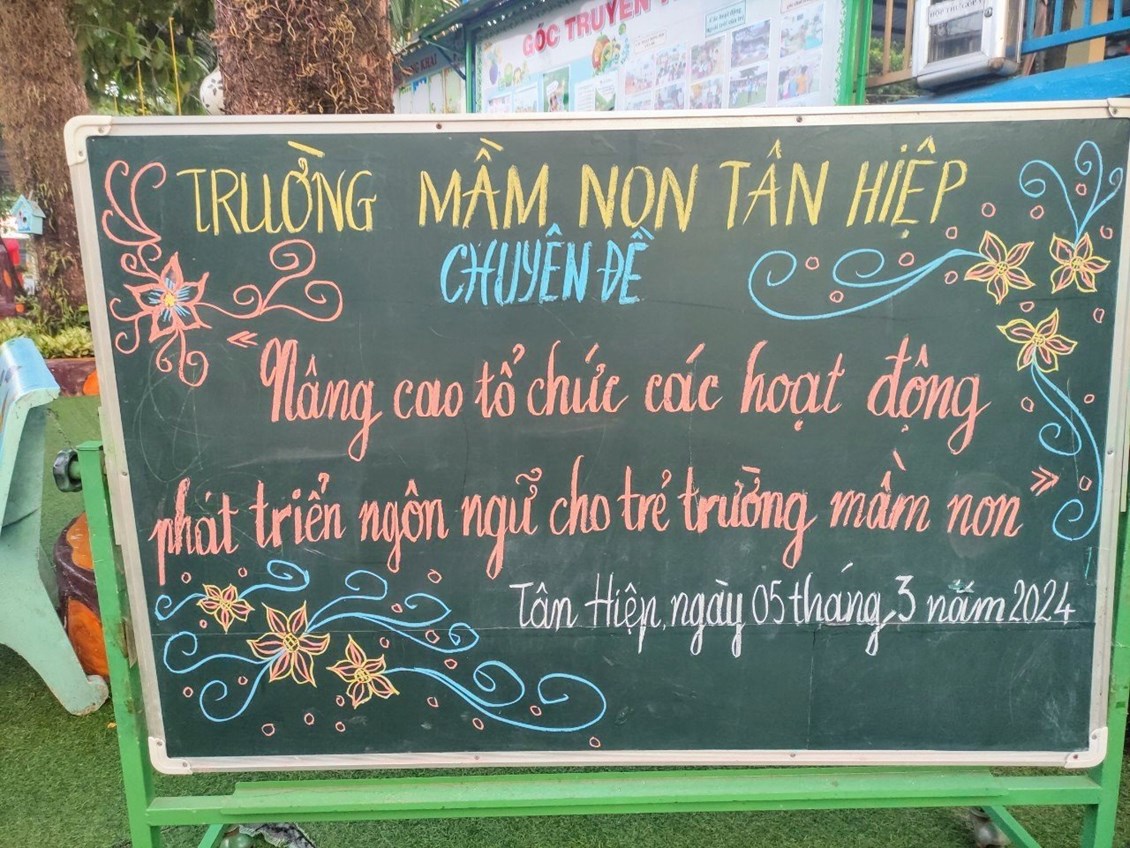 GÓC TRUYỀN
TRƯỜNG MẦM NON TÂN HIỆP
CHUYÊN ĐỀ
“Nâng cao tổ chức các hoạt động
phát triển ngôn ngữ cho trẻ trường mầm non”
Tân Hiệp, ngày 05 tháng 3 năm 2024